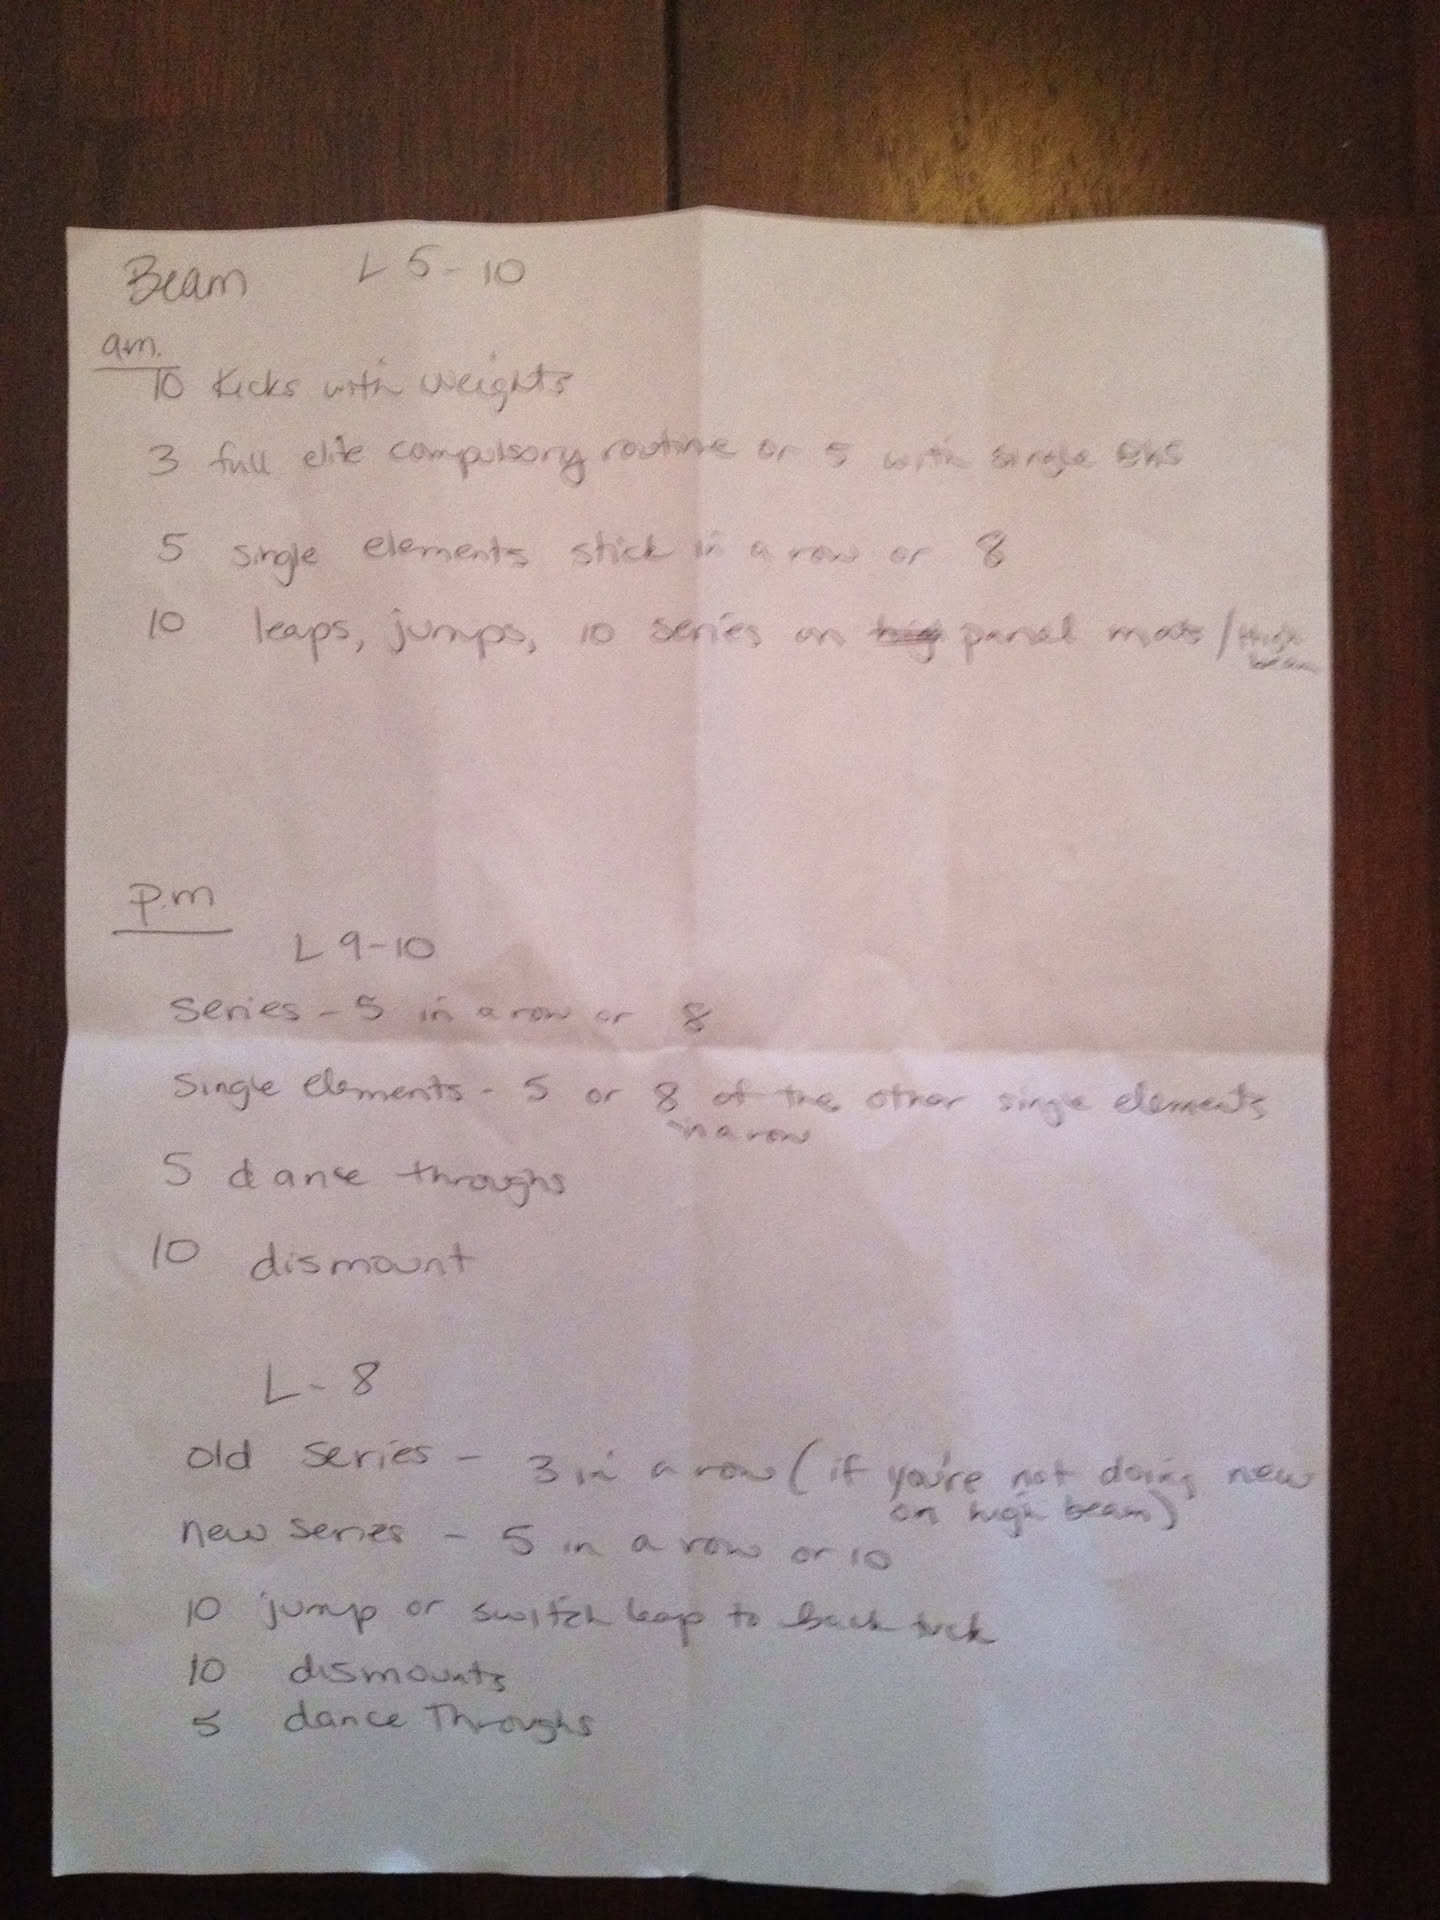 Beam L 5-10
a.m.
10 Kicks with weights
3 full elite compulsory routine or 5 with single BHS
5 single elements stick in a row or 8
10 leaps, jumps, 10 series on panel mats / high
beam
p.m
L 9-10
Series - 5 in a row or 8
Single elements - 5 or 8 of the other single elements
in a row
5 dance throughs
10 dismount
L- 8
old series - 3 in a row (if you're not doing new
on high beam)
new series - 5 in a row or 10
10 jump or switch leap to back tuck
10 dismounts
5 dance Throughs